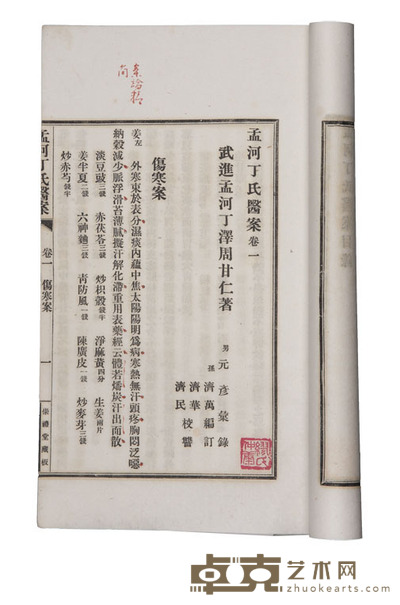 孟河丁氏醫案 卷一
武進孟河丁澤周甘仁著
男 元彥彙錄
孫 濟萬編訂
濟華校
濟民 讐
傷寒案
姜左 外寒束於表分濕痰內蘊中焦太陽陽明爲病寒熱無汗頭疼胸悶泛噁
納穀減少脈浮滑苔薄膩擬汗解化滯重用表藥經云體若燔炭汗出而散
淡豆豉三錢 赤茯苓三錢 炒枳殼錢半 淨麻黃四分 生姜兩片
姜半夏二錢 六神麯三錢 青防風一錢 陳廣皮一錢 炒麥芽三錢
炒赤芍錢半
孟河丁氏醫案
卷一 傷寒案
一
崇禮堂藏板
卓克艺术网
www.zhuokearts.com